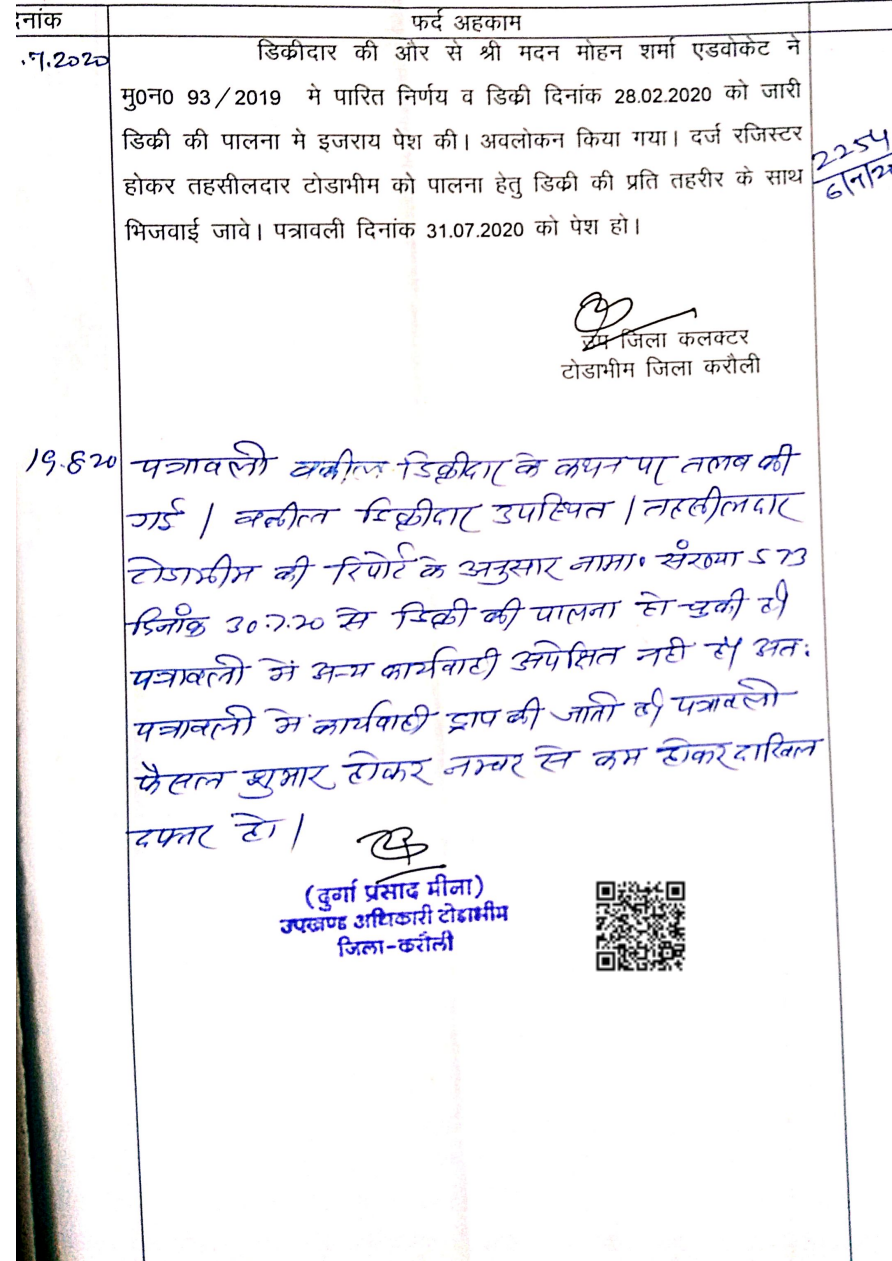 दिनांक
फर्द अहकाम
.7.2020
डिक्रीदार की और से श्री मदन मोहन शर्मा एडवोकेट ने
मु0न0 93/2019 मे पारित निर्णय व डिक्री दिनांक 28.02.2020 को जारी
डिक्री की पालना मे इजराय पेश की। अवलोकन किया गया। दर्ज रजिस्टर
होकर तहसीलदार टोडाभीम को पालना हेतु डिक्री की प्रति तहरीर के साथ
भिजवाई जावे। पत्रावली दिनांक 31.07.2020 को पेश हो।
2254
6/7/20
उप जिला कलक्टर
टोडाभीम जिला करौली
19.8.20
पत्रावली वकील डिक्रीदार के कथन पर तलब की
गई। वकील डिक्रीदार उपस्थित। तहसीलदार
टोडाभीम की रिपोर्ट के अनुसार नामा. संख्या 573
दिनाँक 30.7.20 से डिक्री की पालना हो चुकी है।
पत्रावली में अन्य कार्यवाही अपेक्षित नही है। अतः
पत्रावली में कार्यवाही ड्राप की जाती है। पत्रावली
फैसल शुमार होकर नम्बर से कम होकर दाखिल
दफ्तर हो।
(दुर्गा प्रसाद मीना)
उपखण्ड अधिकारी टोडाभीम
जिला-करौली